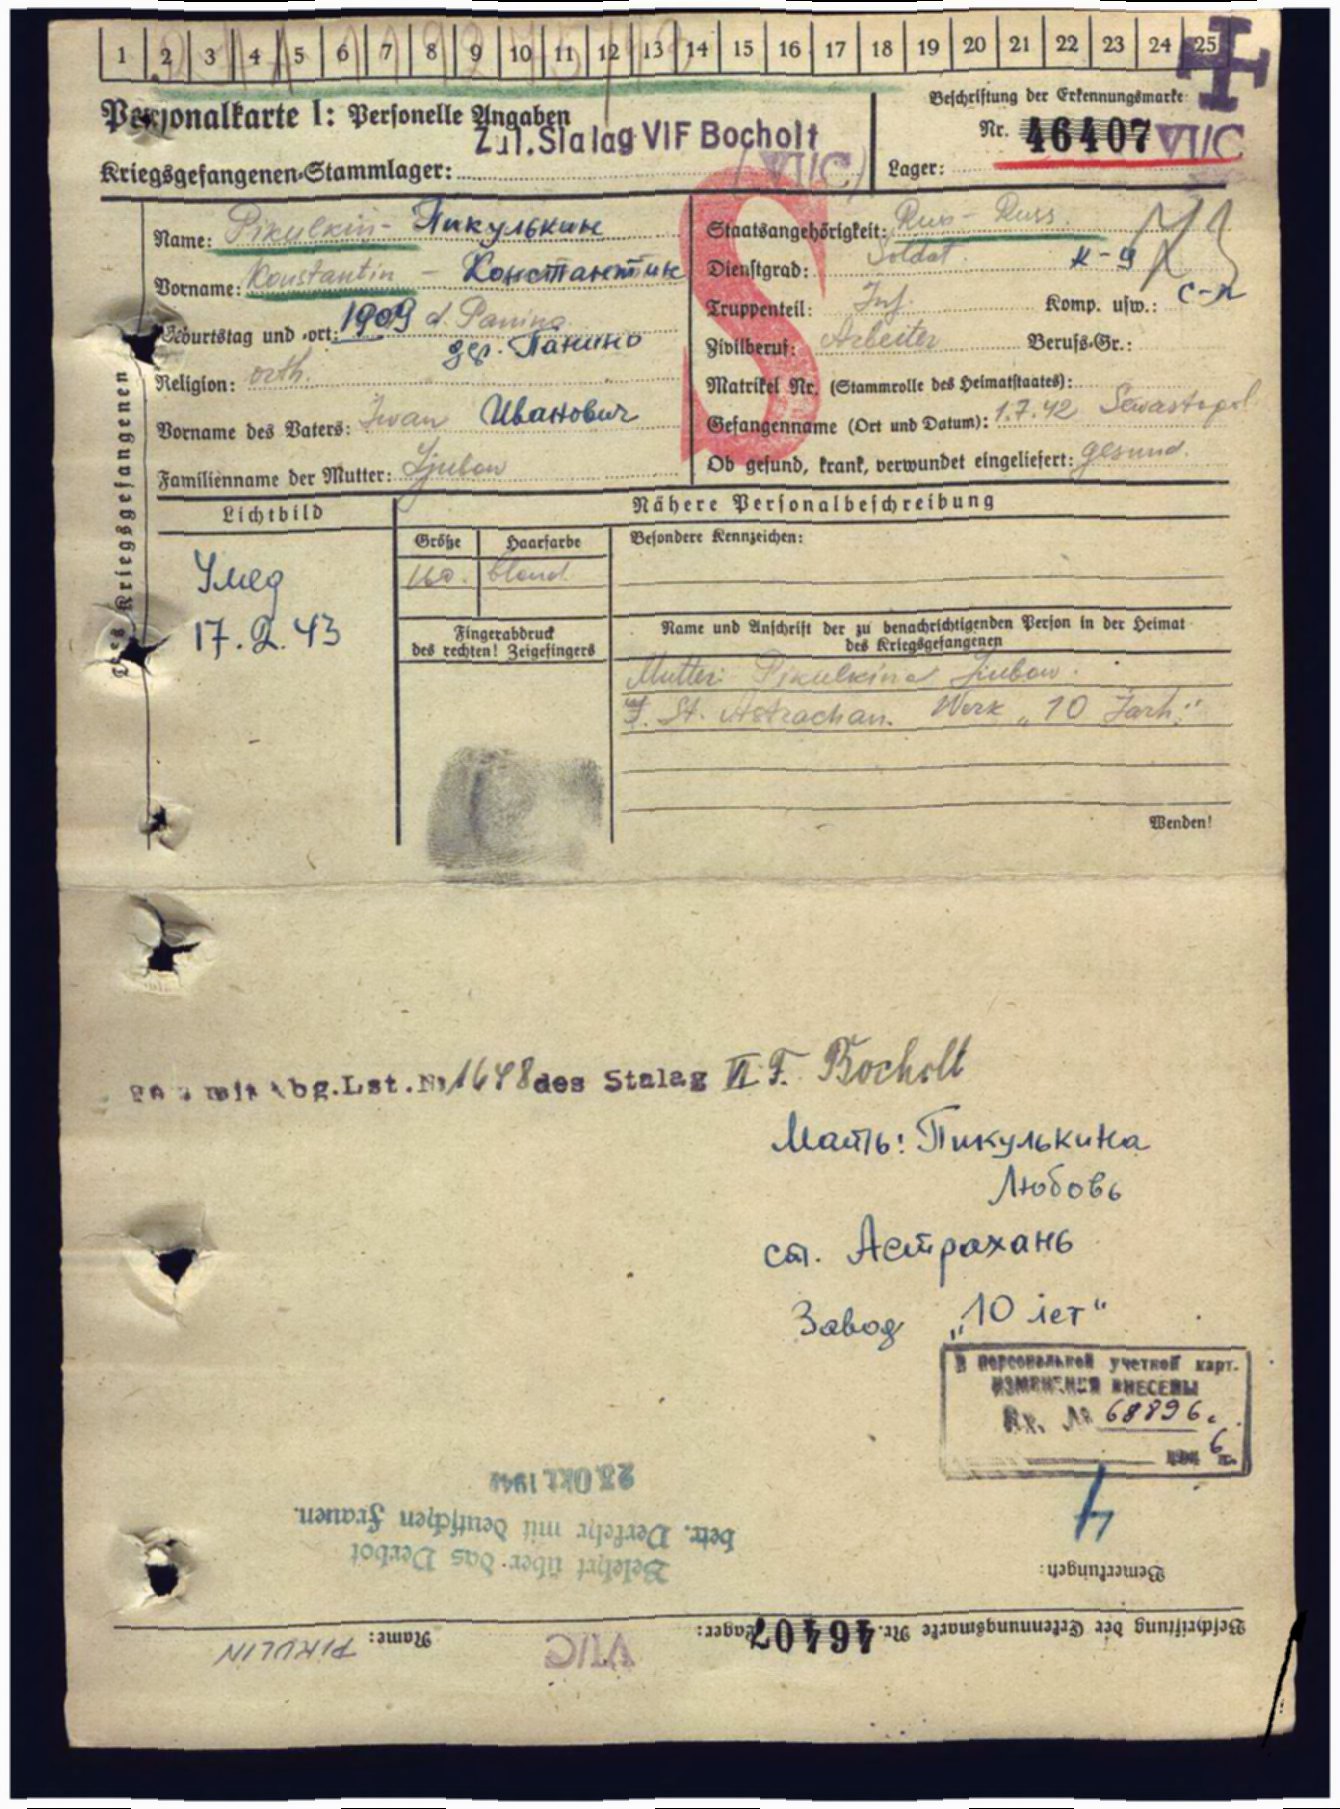 1 2 3 4 5 6 7 8 9 10 11 12 13 14 15 16 17 18 19 20 21 22 23 24 25
Personalkarte I: Personelle Angaben
Beschriftung der Erkennungsmarke
Zul. Stalag VIF Bocholt
Nr. 46407 VI/C
Kriegsgefangenen-Stammlager: (VI/C)
Lager:
Des Kriegsgefangenen
Name: Pikulkin - Пикулькин
Staatsangehörigkeit: Rus - Russ.
Vorname: Konstantin - Константин
Dienstgrad: Soldat. к-я
Geburtstag und -ort: 1909 d. Panino
дер. Панино
Truppenteil: Inf. Komp. usw.: с-л
Zivilberuf: Arbeiter Berufs-Gr.:
Religion: orth.
Matrikel Nr. (Stammrolle des Heimatstaates):
Vorname des Vaters: Iwan Иванович
Gefangenname (Ort und Datum): 1.7.42 Sewastopol
Familienname der Mutter: Ljubow
Ob gesund, krank, verwundet eingeliefert: gesund.
S
Lichtbild
Nähere Personalbeschreibung
Größe Haarfarbe
Besondere Kennzeichen:
160. blond
Умер
17.2.43
Fingerabdruck
des rechten! Zeigefingers
Name und Anschrift der zu benachrichtigenden Person in der Heimat
des Kriegsgefangenen
Mutter: Pikulkina Ljubow.
St. Astrachan. Werk „10 Jarh."
Wenden!
mit Abg.Lst.Nr 1648 des Stalag VI F. Bocholt
Мать: Пикулькина
Любовь
ст. Астрахань
Завод „10 лет"
В персональной учетной карт.
ИЗМЕНЕНИЯ ВНЕСЕНЫ
Вх. № 68896.
194 6 г.
4
Bemerkungen:
Belehrt über das Verbot
betr. Verkehr mit deutschen Frauen.
23. Okt. 1942
Beschriftung der Erkennungsmarke Nr. 46407 Lager: VI/C Name: PIKULIN